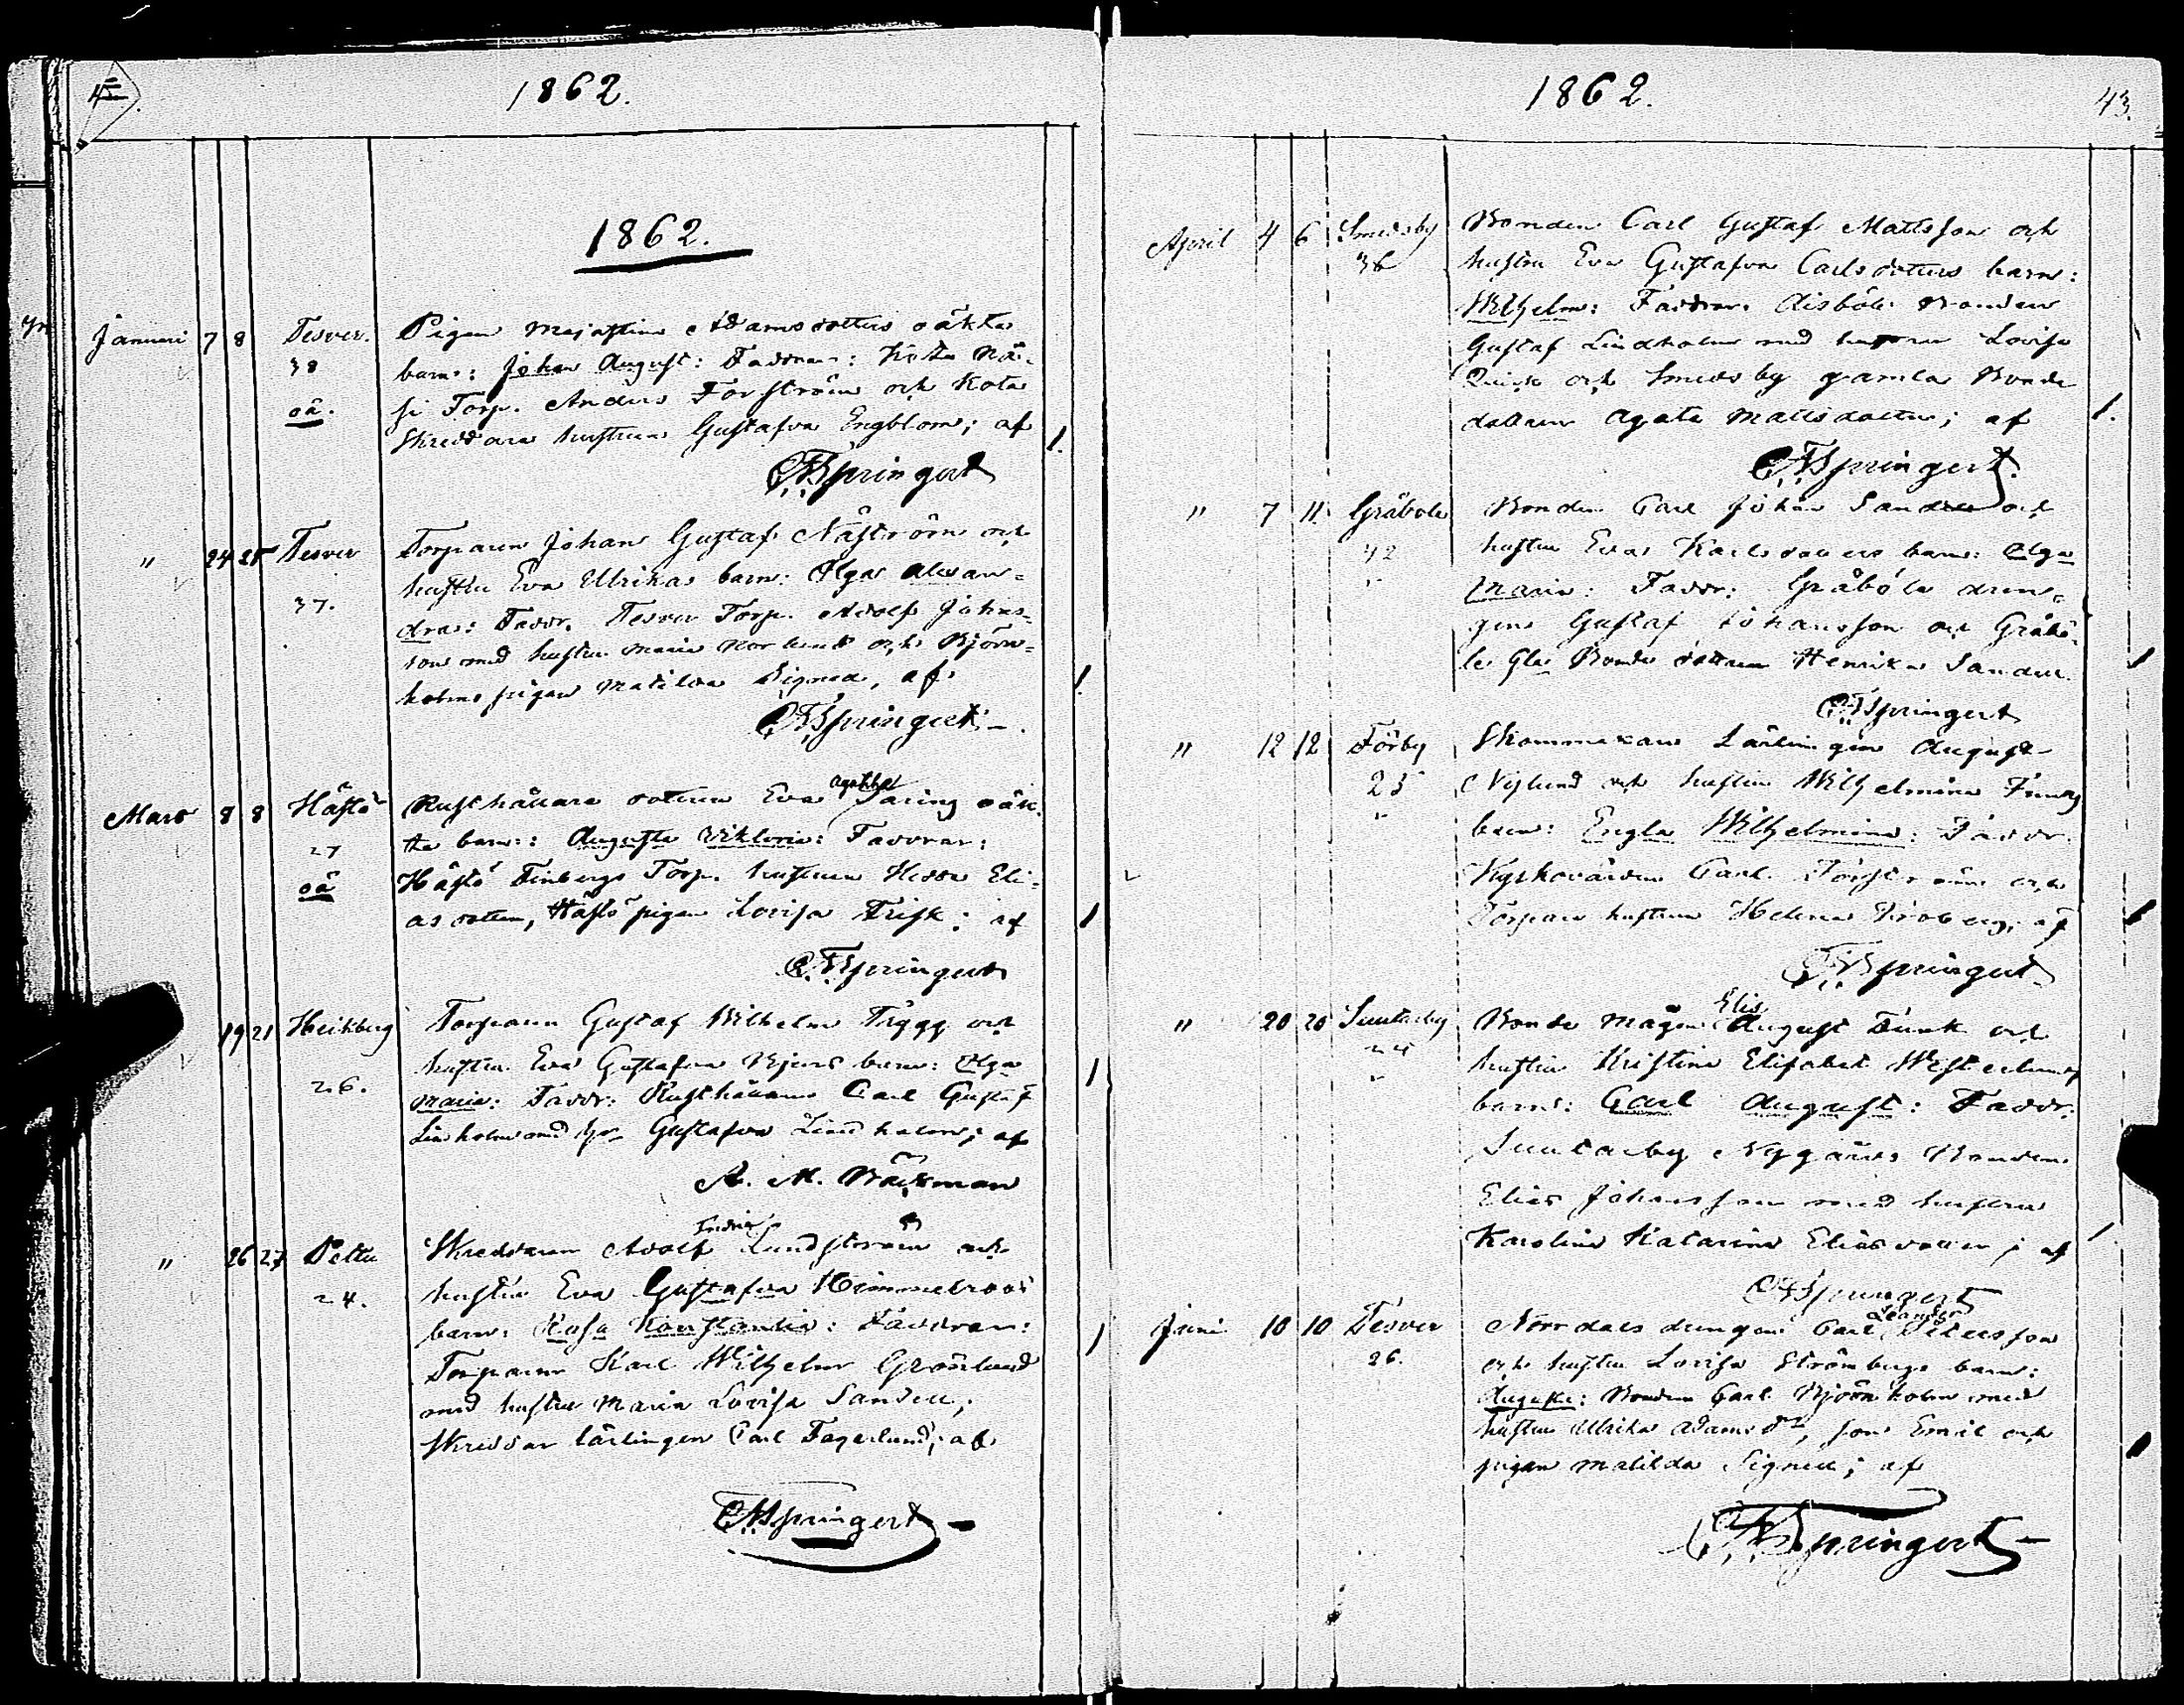 1862.
1862.
Januari 7 8 Tesver. Pigan Majastina Adamsdotters oäkta
38 barn: Johan August: Faddrar: Kota Nä-
oä. si Torp. Anders Forström och Kota
Skreddare hustrun Gustafva Engblom; af 1.
CFSpringert
" 24 25 Tesver Torparen Johan Gustaf Näström och
37. hustru Eva Ulrikas barn: Olga Alexan=
dra: Faddr. Tesver Torp. Adolf Johns=
son med hustru Maria Norlund och Björn=
holms pigan Matilda Signed, af 1.
CFSpringert.
Mars 8 8 Håstö Rusthållare dottren Eva Agatha Saring oäk-
27 ta barn: Augusta Viktoria: Faddrar:
oä Håstö Finbergs Torp. hustrun Hedda Eli=
as dotter, Håstö pigan Lovisa Frisk; af 1
CFSpringert
19 21 Heikberg Torparen Gustaf Wilhelm Trygg och
hustru Eva Gustafva Bjurs barn: Olga
26. Maria: Faddr: Rusthållaren Carl Gustaf 1
Linholm med Gustafva Lindholm; af
A. M. Wäksman
" 26 27 Pettu Skreddaren Adolf Fredrik Lundström och
24. hustru Eva Gustafva Himmelroos
barn: Rosa Konstantia: Faddrar: 1
Torparen Karl Wilhelm Grönlund
med hustru Maria Lovisa Sandell,
Skreddar lärlingen Carl Fagerlund; af
CFSpringert
1862. 43.
April 4 6 Smedsby Bonden Carl Gustaf Mattsson och
36 hustru Eva Gustafva Carlsdotters barn:
Wilhelm: Faddrar: Aisböle Bonden
Gustaf Lindholm med hustru Lovisa
och Smedsby gamla Bonde
dottren Agata Mattsdotter; af 1.
CFSpringert
" 7 11. Gräböle Bonden Carl Johan Sandell och
42 hustru Eva Karlsdotters barn: Olga
Maria: Faddr: Gräböle dren=
gen Gustaf Johansson och Gräbö-
le Gla Bonde dottren Henrika Sandell. 1
CFSpringert
" 12 12 Förby Skommakare Lärlingen August
25 Nyslund och hustru Wilhelmina
barn: Engla Wilhelmina: Faddr.
Kyrkovärden Carl Forström och
Torpare hustrun Helena Broberg, af 1
CFSpringert
" 20 20 Suutarby Bonde mågen Elis August Funk och
24 hustru Kristina Elisabet Westerlunds
barn: Carl August: Faddr:
Suutarby Nygårds Bonden
Elias Johansson med hustru
Karolina Katarina Eliasdotter; af 1
CFSpringert
Juni 10 10 Tesver Norrdals drengen Carl Leander Petersson
26. och hustru Lovisa Strömbergs barn:
Augusta: Bonden Carl Björnholm med
hustru Ulrika Adamsdr, son Emil och
pigan Matilda Signell; af 1
CFSpringert